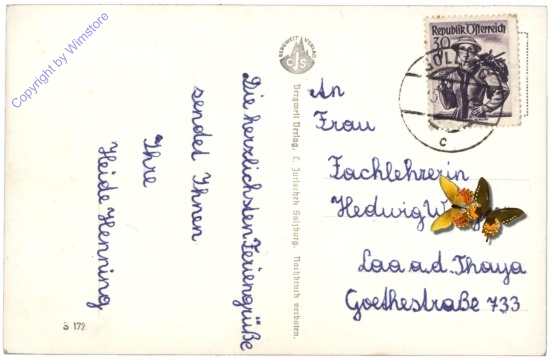 Copyright by Wimstore
Die herzlichsten Feriengrüße
sendet Ihnen
Ihre
Heide Henning
S 172
BERGWELT VERLAG
CJS
Bergwelt Verlag, C. Jurischek Salzburg. Nachdruck verboten.
Republik Österreich
30
c
An
Frau
Fachlehrerin
Hedwig
Laa a.d. Thaya
Goethestraße 733